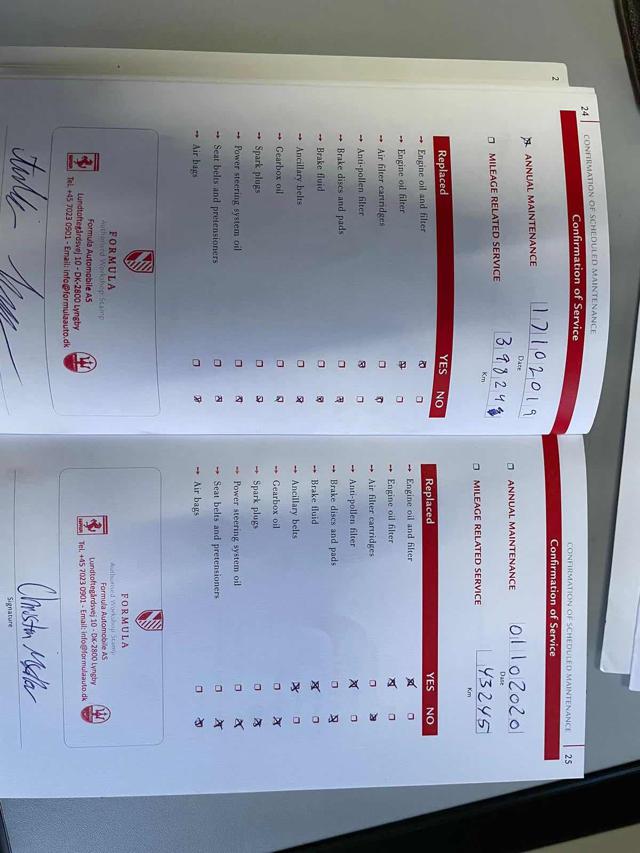 2
24
CONFIRMATION OF SCHEDULED MAINTENANCE
Confirmation of Service
ANNUAL MAINTENANCE
17102019
Date
MILEAGE RELATED SERVICE
Km
Replaced YES NO
→ Engine oil and filter
→ Engine oil filter
→ Air filter cartridges
→ Anti-pollen filter
→ Brake discs and pads
→ Brake fluid
→ Ancillary belts
→ Gearbox oil
→ Spark plugs
→ Power steering system oil
→ Seat belts and pretensioners
→ Air bags
FORMULA
Authorised Workshop Stamp
Formula Automobile AS
Lundtoftegårdsvej 10 - DK-2800 Lyngby
Tel. +45 7023 0901 - Email: info@formulaauto.dk
CONFIRMATION OF SCHEDULED MAINTENANCE
25
Confirmation of Service
ANNUAL MAINTENANCE
01102020
Date
MILEAGE RELATED SERVICE
43245
Km
Replaced YES NO
→ Engine oil and filter
→ Engine oil filter
→ Air filter cartridges
→ Anti-pollen filter
→ Brake discs and pads
→ Brake fluid
→ Ancillary belts
→ Gearbox oil
→ Spark plugs
→ Power steering system oil
→ Seat belts and pretensioners
→ Air bags
FORMULA
Authorised Workshop Stamp
Formula Automobile AS
Lundtoftegårdsvej 10 - DK-2800 Lyngby
Tel. +45 7023 0901 - Email: info@formulaauto.dk
Signature